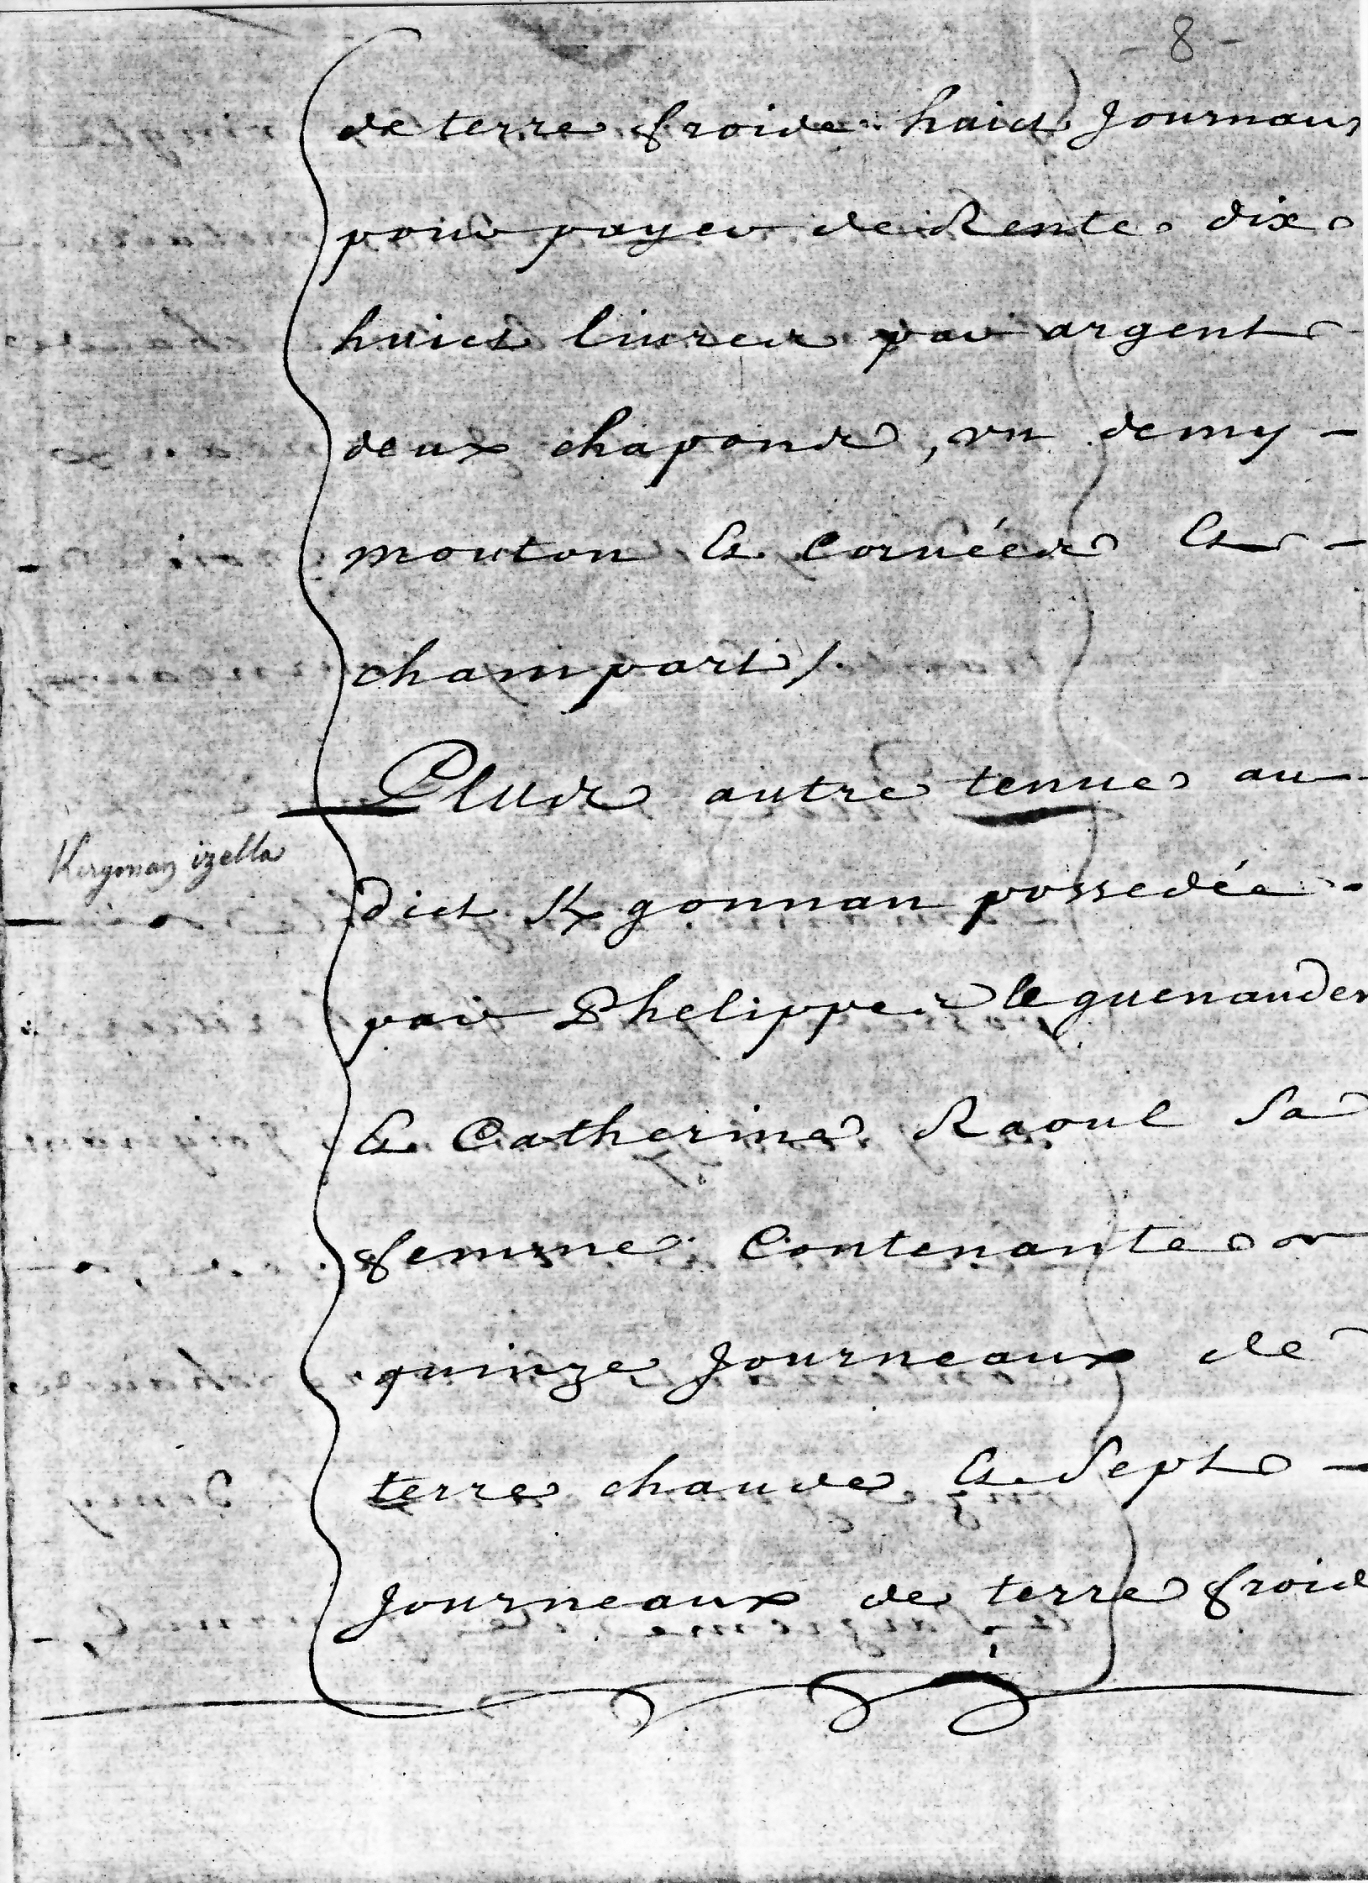 - 8 -
de terre froide huict Journaux
pour payer de Rente dix
huict livres par argent
deux chapons, un demy -
mouton Et Corvées Et -
champart /.
Plus autre tenue au
Kergonan izella
dict K gonnan possedée
par Phelippes le guenander
Et Catherine Raoul Sa
femme Contenante
quinze Journeaux de
terre chaude Et Sept -
Journeaux de terre froide